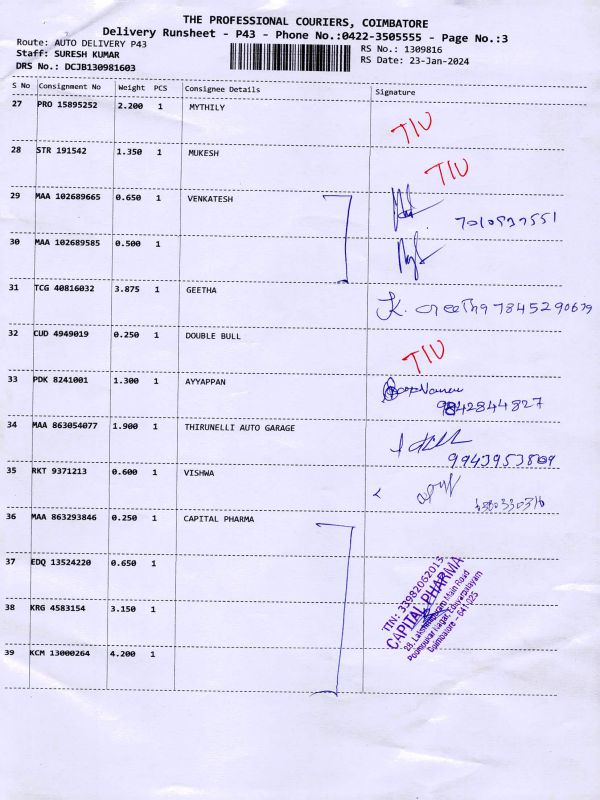 THE PROFESSIONAL COURIERS, COIMBATORE
Delivery Runsheet - P43 - Phone No.:0422-3505555 - Page No.:3
Route: AUTO DELIVERY P43 RS No.: 1309816
Staff: SURESH KUMAR RS Date: 23-Jan-2024
DRS No.: DCJB130981603
S No Consignment No Weight PCS Consignee Details Signature
27 PRO 15895252 2.200 1 MYTHILY
28 STR 191542 1.350 1 MUKESH
29 MAA 102689665 0.650 1 VENKATESH
30 MAA 102689585 0.500 1
31 TCG 40816032 3.875 1 GEETHA K. Geetha 97845290679
32 CUD 4949019 0.250 1 DOUBLE BULL
33 PDK 8241001 1.300 1 AYYAPPAN
9842844827
34 MAA 863054077 1.900 1 THIRUNELLI AUTO GARAGE
35 RKT 9371213 0.600 1 VISHWA
36 MAA 863293846 0.250 1 CAPITAL PHARMA
37 EDQ 13524220 0.650 1
38 KRG 4583154 3.150 1
39 KCM 13000264 4.200 1
TIN: 33982062013
CAPITAL PHARMA
Coimbatore - 641 025